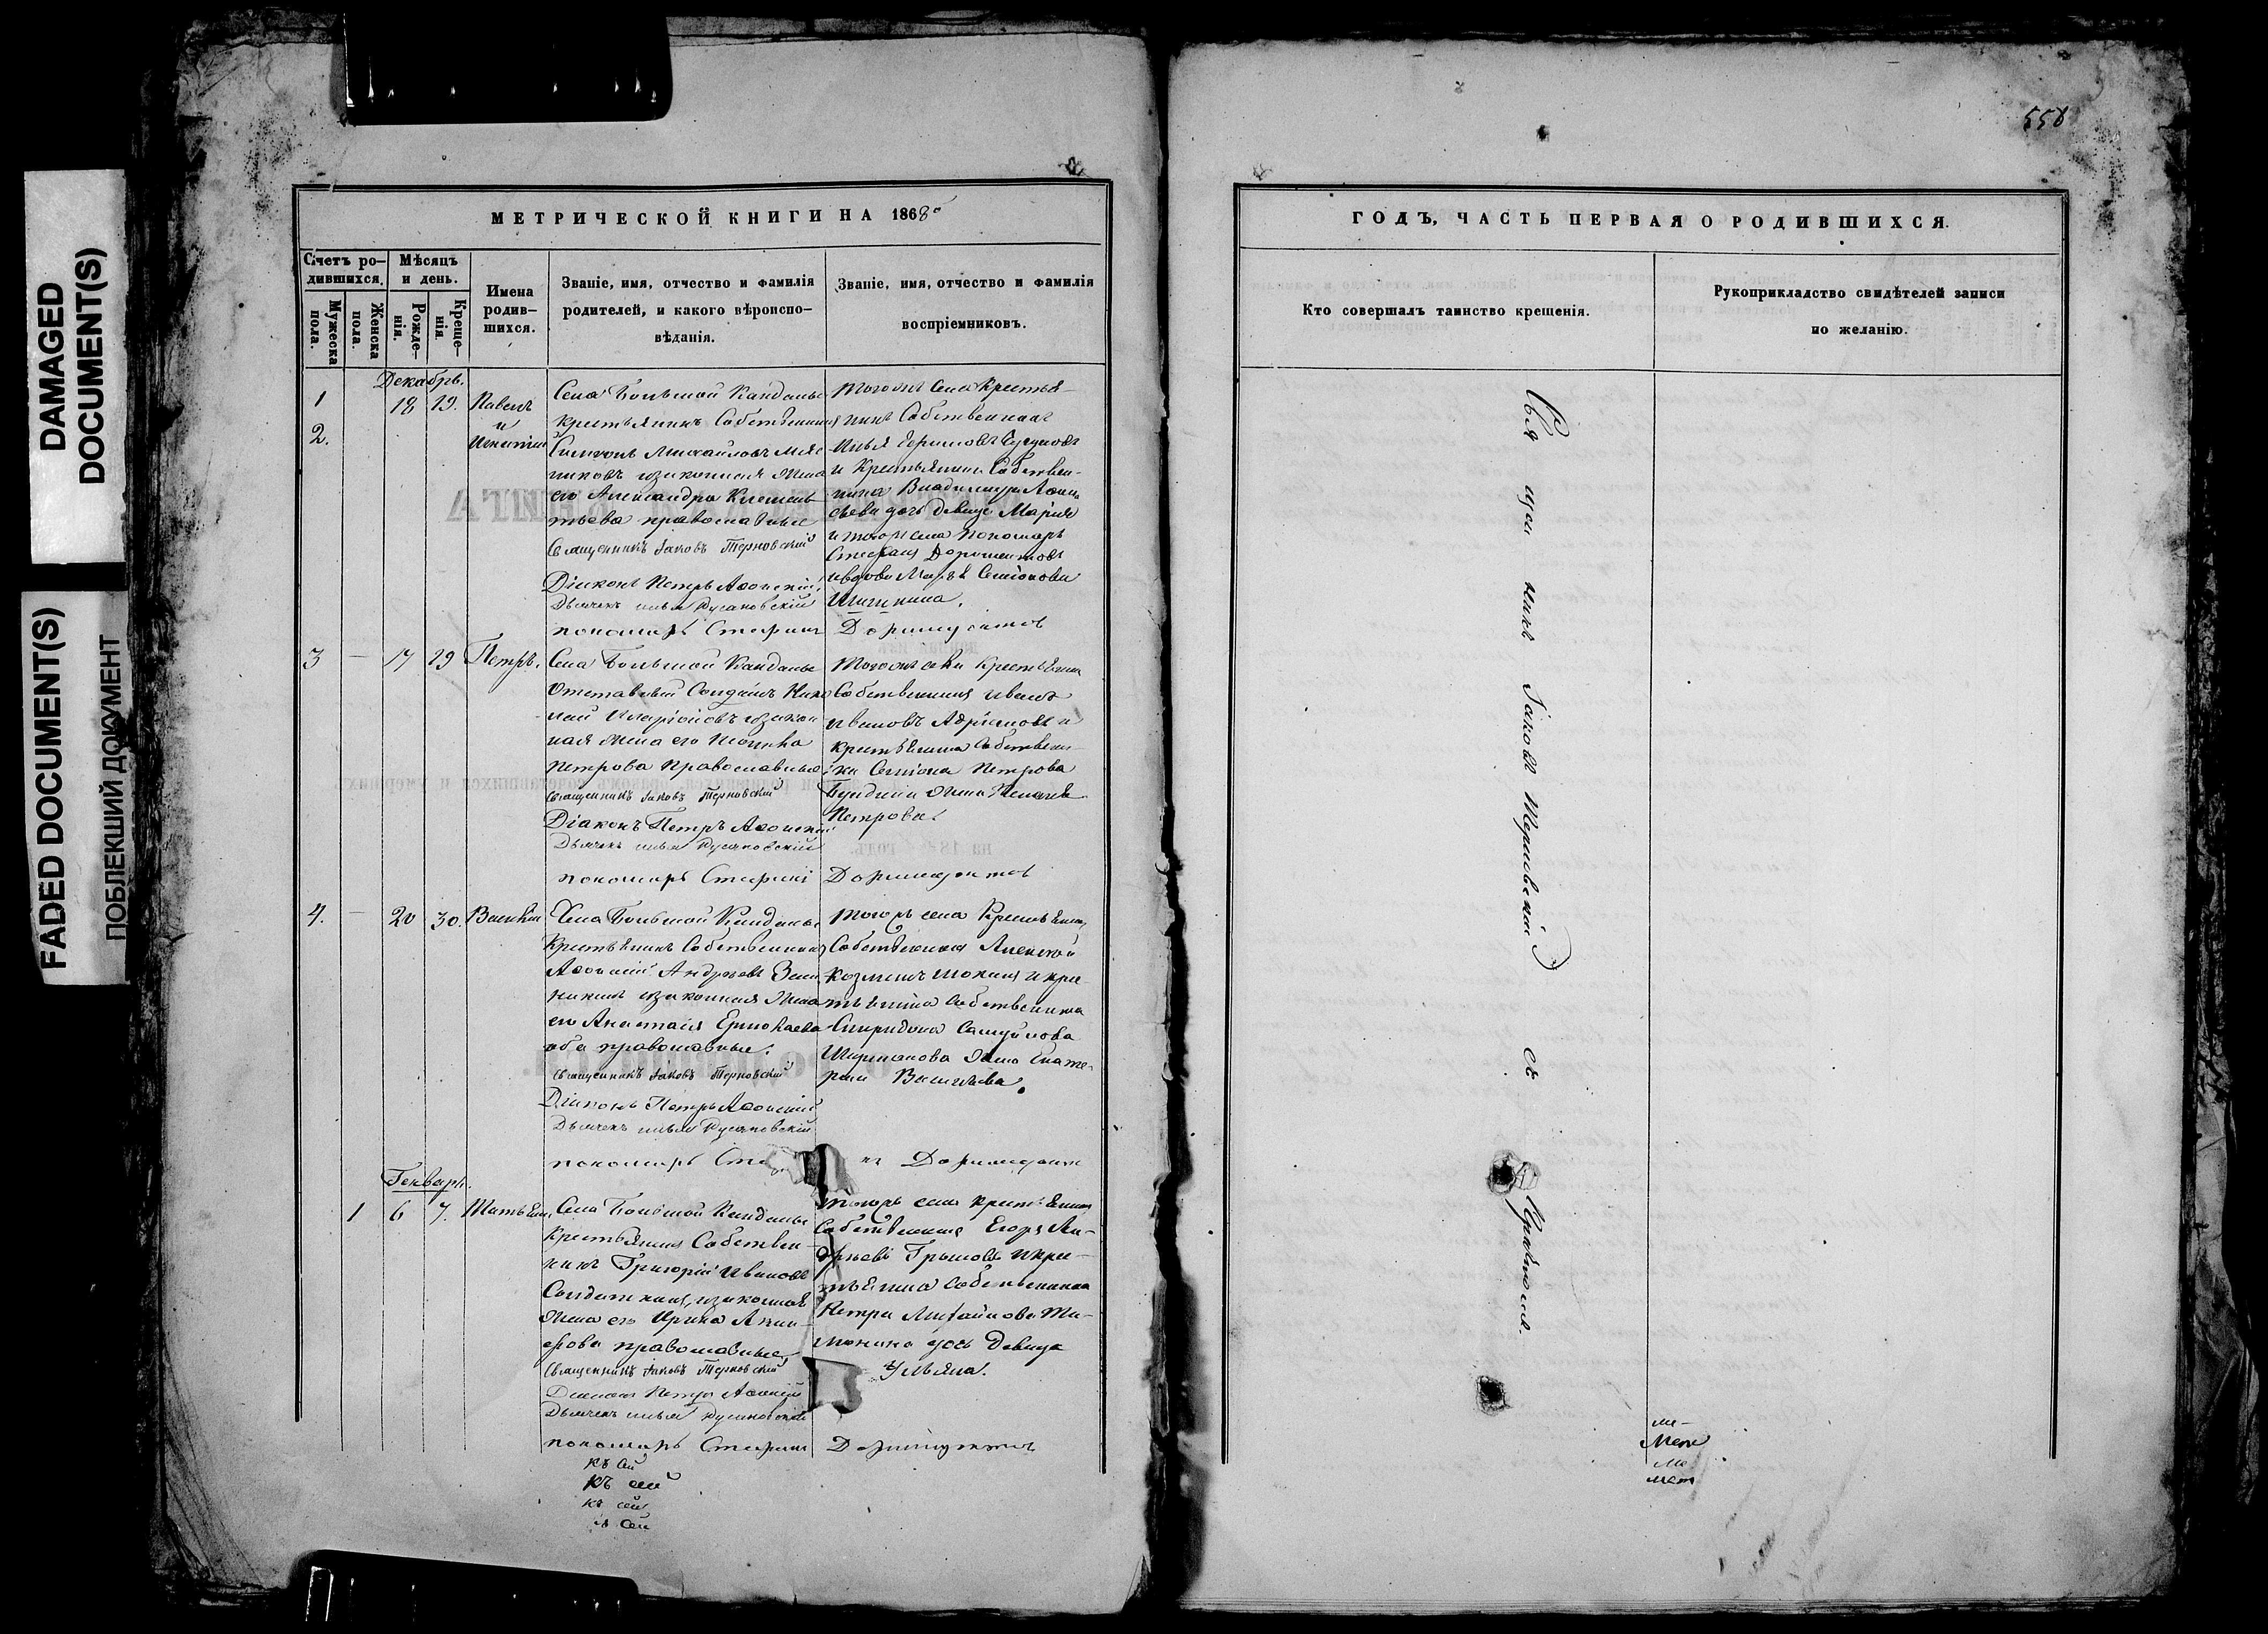 DAMAGED
DOCUMENT(S)
FADED DOCUMENT(S)
ПОБЛЕКШИЙ ДОКУМЕНТ
558
МЕТРИЧЕСКОЙ КНИГИ НА 1868
Счетъ ро-
дившихся.
Мужеска
пола.
Женска
пола.
Мѣсяцъ
и день.
Рожде-
нія.
Креще-
нія.
Имена
родив-
шихся.
Званіе, имя, отчество и фамилія
родителей, и какого вѣроиспо-
вѣданія.
Званіе, имя, отчество и фамилія
воспріемниковъ.
Декабрь.
1
2.
18 19. Павелъ
и
Игнатій
Села Большой Кандалы
крестьянинъ Собственникъ
Симеонъ Михайловъ
законная жена
его Александра Клемень-
тьева православные
Священникъ Іаковъ Терновскій
Діаконъ Петръ Аѳонскій
Дьячекъ Илья Русановскій
пономарь Стефанъ Доримедонтовъ
Тогоже села крестья-
нинъ Собственникъ
Илья Ефимовъ
и крестьянина Собствен-
ника Владимира
дочь девица Марія
и тогоже села пономарь
Стефанъ Доримедонтовъ
и вдова Марѳа Семіонова
Шишкина.
3 — 17 19 Петръ.
Села Большой Кандалы
Отставной Солдатъ Нико
лай Иларіоновъ и закон
ная жена его
Петрова Православные
Священникъ Іаковъ Терновскій
Діаконъ Петръ Аѳонскій
Дьячекъ Илья Русановскій
пономарь Стефанъ Доримедонтовъ
Тогоже села крестьянинъ
Собственникъ Иванъ
Ивановъ Абрамовъ и
крестьянина Собствен-
ника Семіона Петрова
жена Пелагея
Петрова.
4. — 20 30. Василій
Села Большой Кандалы
Крестьянинъ Собственникъ
Аѳонасій Андреевъ
законная жена
его Анастасія Ермолаева
оба православные.
Священникъ Іаковъ Терновскій
Діаконъ Петръ Аѳонскій
Дьячекъ Илья Русановскій
пономарь
Тогожъ села Крестьянинъ
Собственникъ Алексей
Козминъ и кре
стьянина Собственника
Спиридона Самуилова
жена Екате-
рина Васильева.
Генварь.
1 6 7. Татьяна
Села Большой Кандалы
Крестьянинъ Собствен-
никъ Григорій Ивановъ
Солдаткинъ, и законная
жена его Ирина
православные
Священникъ Іаковъ Терновскій
Діаконъ Петръ Аѳонскій
Дьячекъ Илья Русановскій
пономарь Стефанъ Доримедонтовъ
Тогожъ села крестьянинъ
Собственникъ Егоръ Ан-
дреевъ Громовъ и кре-
стьянина Собственника
Петра Михайлова Ти-
монина дочь девица
Ульяна.
къ сей
къ сей
къ сей
къ сей
ГОДЪ, ЧАСТЬ ПЕРВАЯ О РОДИВШИХСЯ.
Кто совершалъ таинство крещенія.
Рукоприкладство свидѣтелей записи
по желанію.
Священникъ Іаковъ Терновскій съ
ме-
Мет
Ме
мет